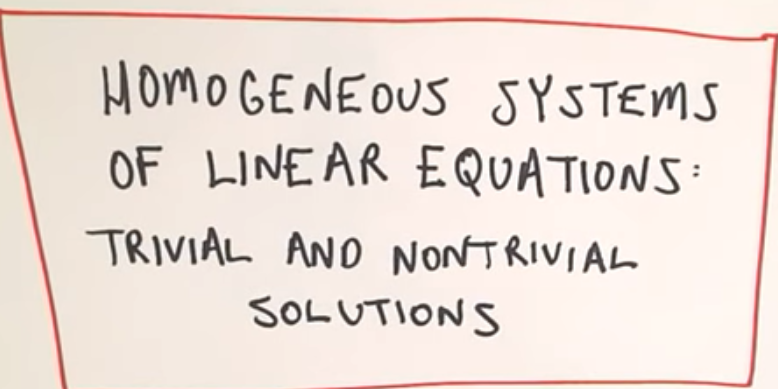 HOMOGENEOUS SYSTEMS
OF LINEAR EQUATIONS:
TRIVIAL AND NONTRIVIAL
SOLUTIONS